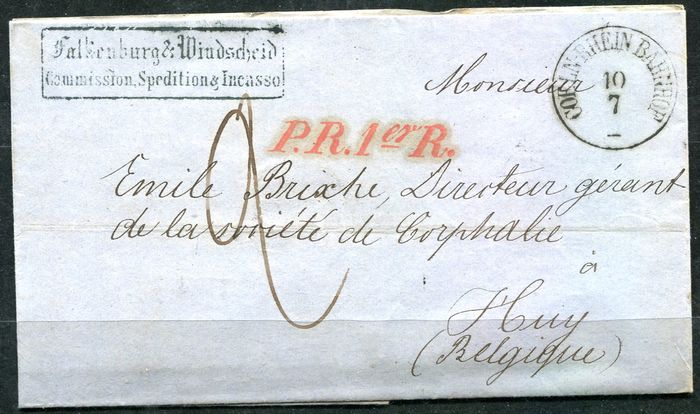 Falkenburg & Windscheid
Commission, Spedition & Incasso
COELN RHEIN BAHNHOF
10
7
Monsieur
P.R. 1er R.
Emile Brixhe, Directeur gérant
de la société de Corphalie
à
Huy
(Belgique)
2